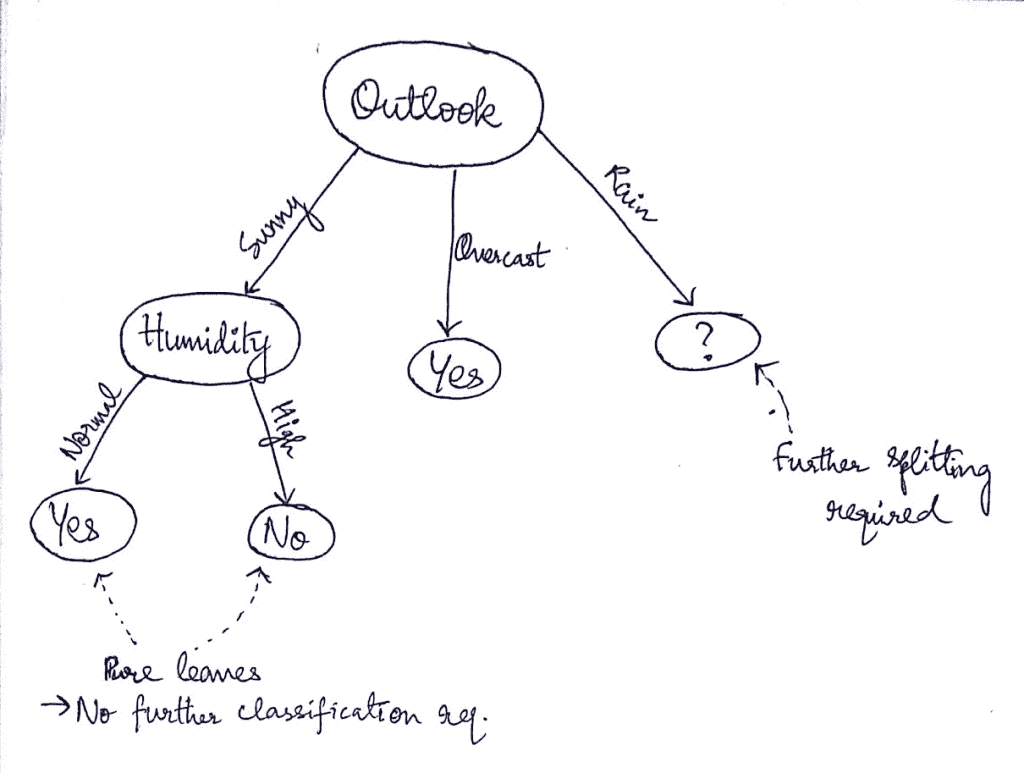 Outlook
Sunny
Overcast
Rain
Humidity
Yes
?
Normal
High
Further splitting
required
Yes
No
Pure leaves
→ No further classification req.